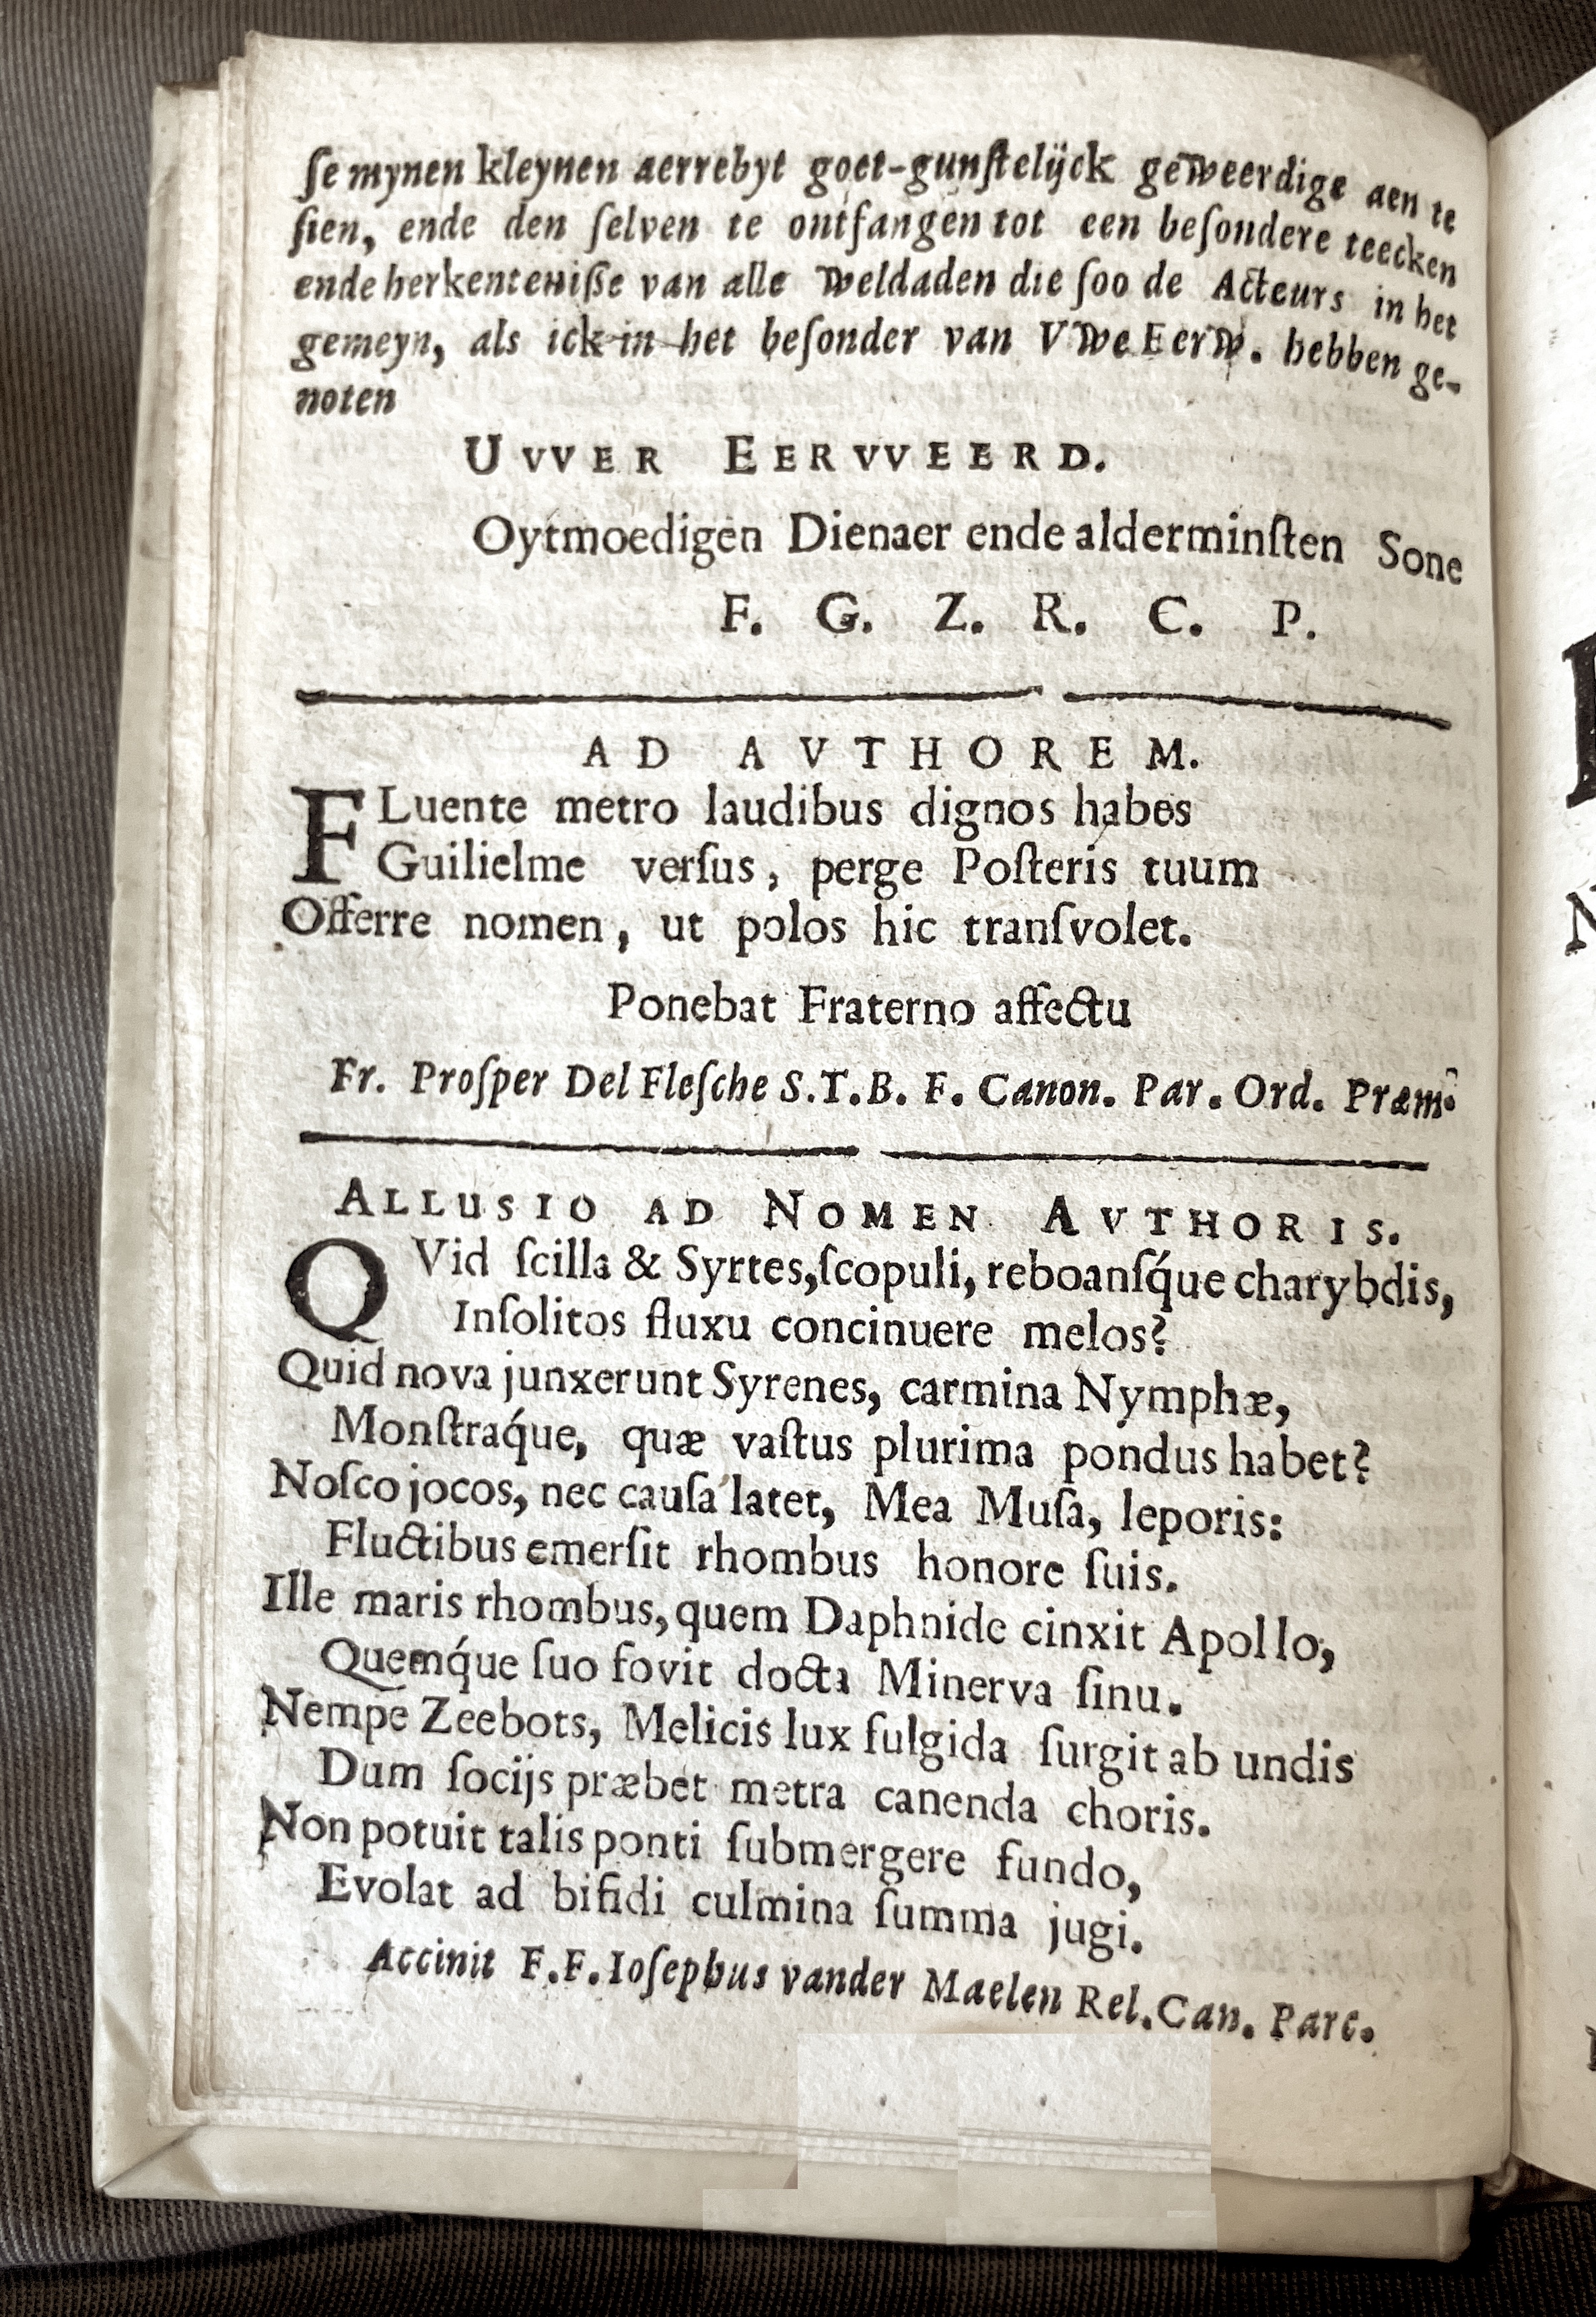 ſe mynen kleynen aerrebyt goet-gunſtelijck geweerdige aen te
ſien, ende den ſelven te ontfangen tot een beſondere teecken
ende herkenteniſſe van alle weldaden die ſoo de Acteurs in het
gemeyn, als ick in het beſonder van Vwe Eerw. hebben ge-
noten
UVVER EERVVEERD.
Oytmoedigen Dienaer ende alderminſten Sone
F. G. Z. R. C. P.
AD AVTHOREM.
FLuente metro laudibus dignos habes
Guilielme verſus, perge Poſteris tuum
Offerre nomen, ut polos hic tranſvolet.
Ponebat Fraterno affectu
Fr. Proſper Del Fleſche S.T.B. F. Canon. Par. Ord. Præm.
ALLUSIO AD NOMEN AVTHORIS.
QVid ſcilla & Syrtes, ſcopuli, reboanſq́ue charybdis,
Inſolitos fluxu concinuere melos?
Quid nova junxerunt Syrenes, carmina Nymphæ,
Monſtraq́ue, quæ vaſtus plurima pondus habet?
Noſco jocos, nec cauſa latet, Mea Muſa, leporis:
Fluctibus emerſit rhombus honore ſuis.
Ille maris rhombus, quem Daphnide cinxit Apollo,
Quemq́ue ſuo fovit docta Minerva ſinu.
Nempe Zeebots, Melicis lux fulgida ſurgit ab undis
Dum ſocijs præbet metra canenda choris.
Non potuit talis ponti ſubmergere fundo,
Evolat ad bifidi culmina ſumma jugi.
Accinit F.F. Ioſephus vander Maelen Rel. Can. Parc.